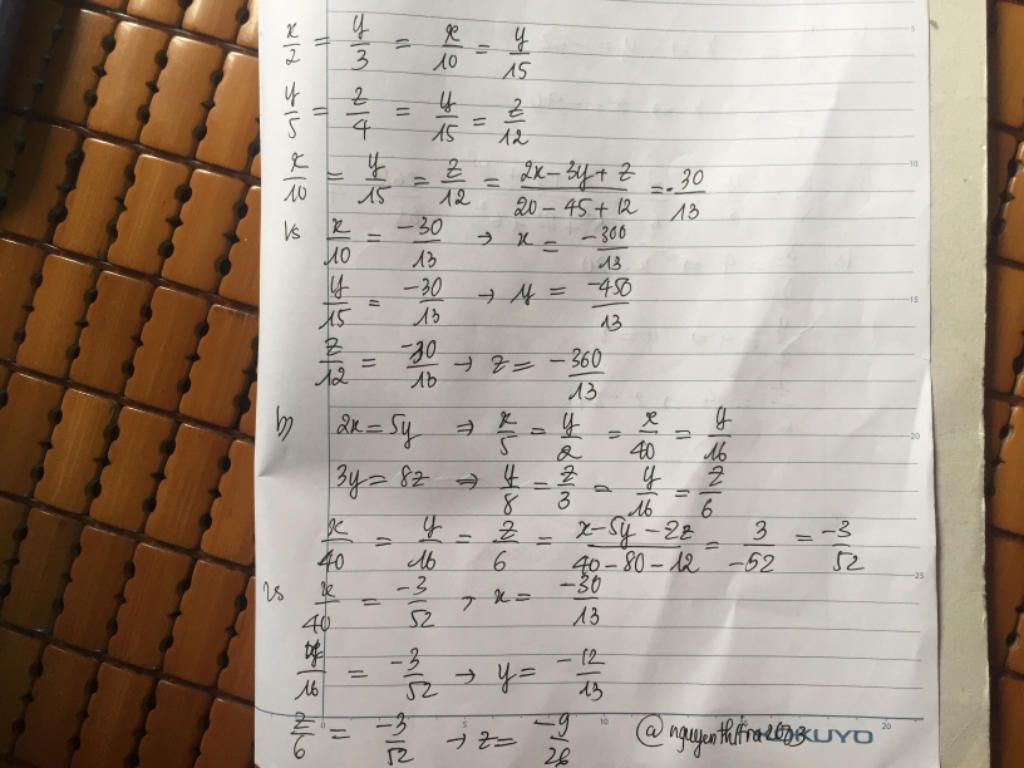 x/2 = y/3 = x/10 = y/15
y/5 = z/4 = y/15 = z/12
x/10 = y/15 = z/12 = (2x-3y+z)/(20-45+12) = -30/13
Vs x/10 = -30/13 → x = -300/13
y/15 = -30/13 → y = -450/13
z/12 = -30/13 → z = -360/13
b) 2x = 5y ⇒ x/5 = y/2 = x/40 = y/16
3y = 8z ⇒ y/8 = z/3 = y/16 = z/6
x/40 = y/16 = z/6 = (x-5y-2z)/(40-80-12) = 3/-52 = -3/52
Vs x/40 = -3/52 → x = -30/13
y/16 = -3/52 → y = -12/13
z/6 = -3/52 → z = -9/26
KOKUYO